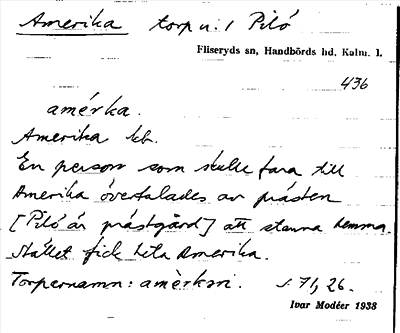 Amerika torp u. 1 Pilö
Fliseryds sn, Handbörds hd, Kalm. l.
436
amérka.
Amerika kb.
En person som skulle fara till
Amerika övertalades av prästen
[Pilö är prästgård] att stanna hemma.
Stället fick heta Amerika.
Torparnamn: amèrkan. s. 71, 26.
Ivar Modéer 1938